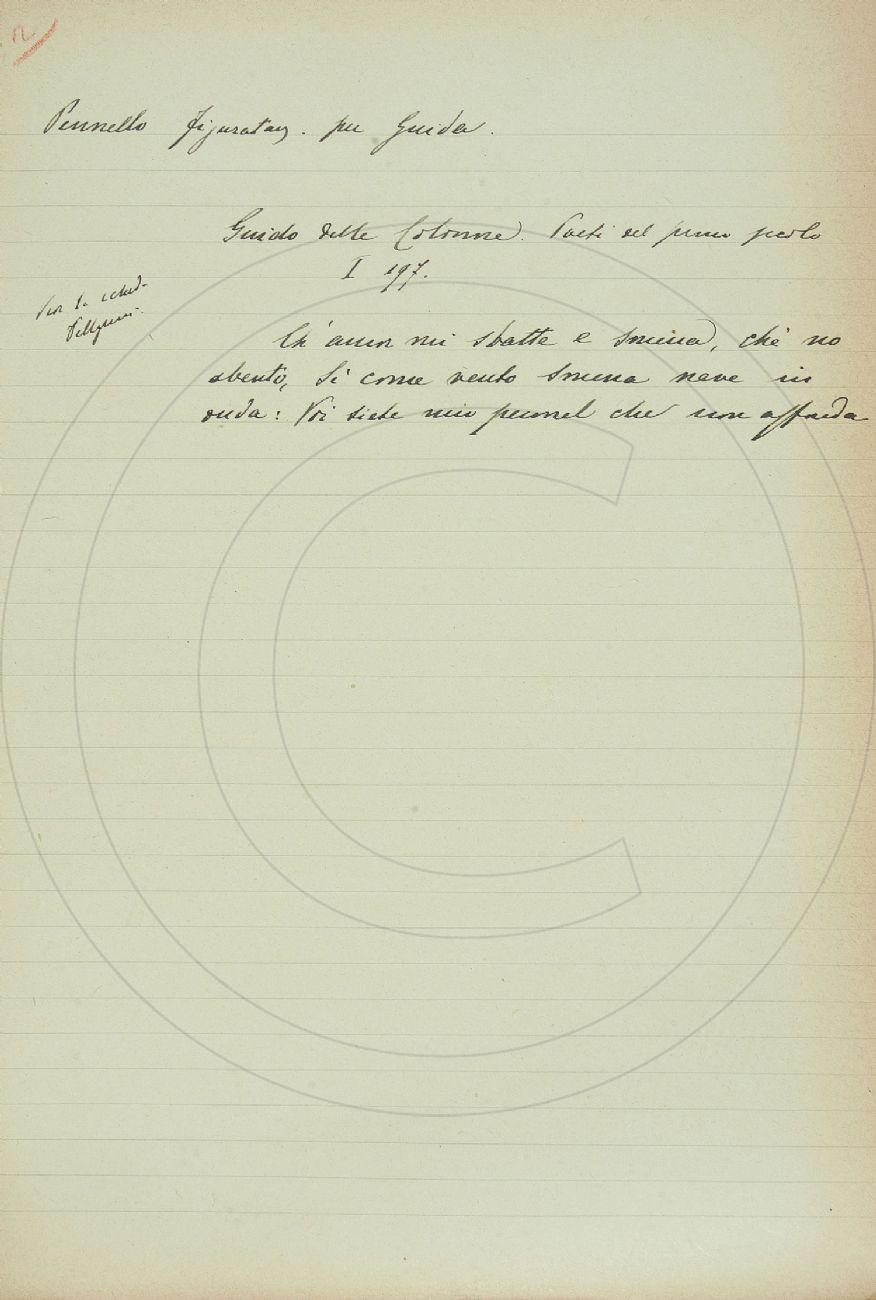 Pennello figuratam. per Guida.
Guido delle Colonne. Poeti del primo secolo
I 197.
Ch' amor mi sbatte e smena, che no
abento, Sì come vento smena nave in
onda: Voi siete mio pennel che non affonda